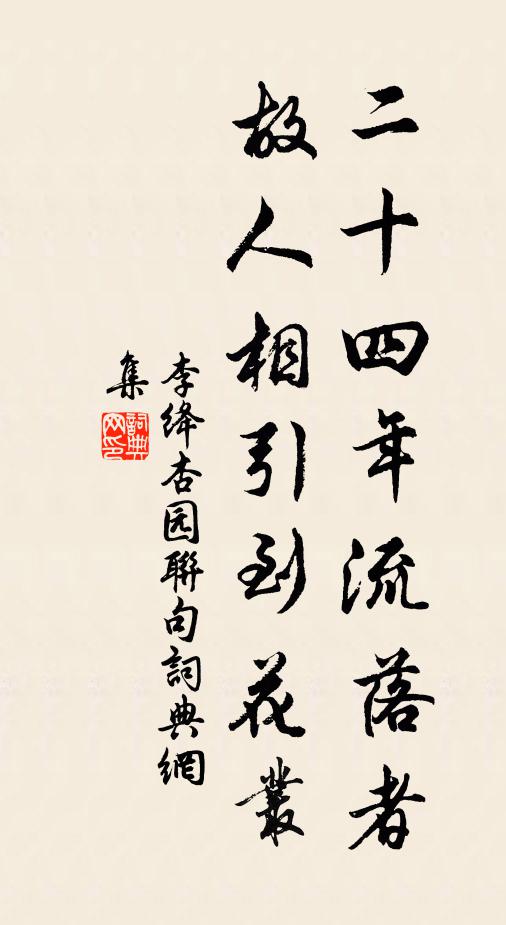 二十四年流落者
故人相引到花叢
李绛杏园聯句詞典網
集
詞典网印